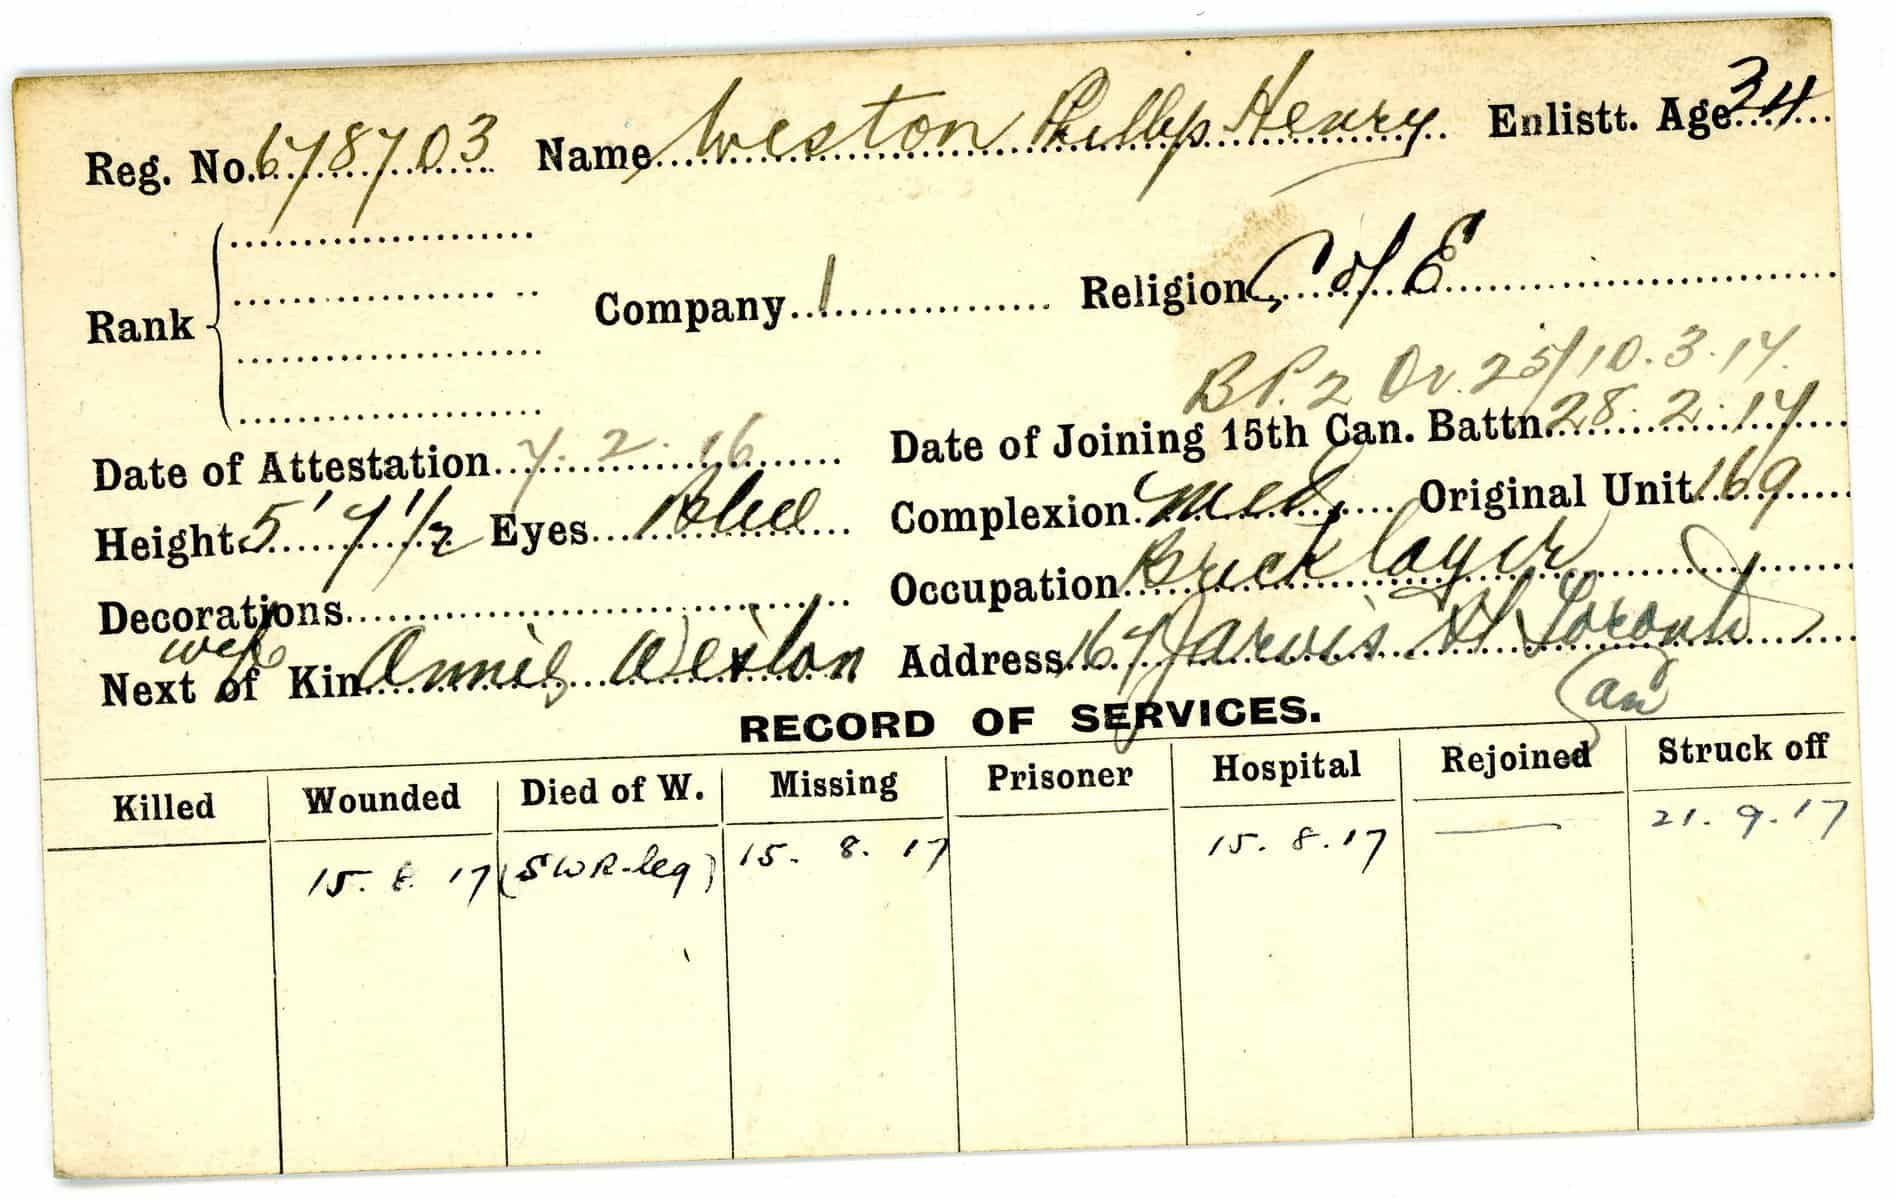 Reg. No. 678703 Name Weston Phillip Henry Enlistt. Age 34
Rank Company 1 Religion C of E
B.P. 2 Or. 25/10.3.17.
Date of Attestation 7.2.16 Date of Joining 15th Can. Battn. 28.2.17
Height 5' 7 1/2 Eyes Blue Complexion Med. Original Unit 169
Decorations Occupation Bricklayer
wife
Next of Kin Annie Weston Address 167 Jarvis St Toronto
Can
RECORD OF SERVICES.
Killed Wounded Died of W. Missing Prisoner Hospital Rejoined Struck off
15.8.17 (SWR-leg) 15.8.17 15.8.17 — 21.9.17